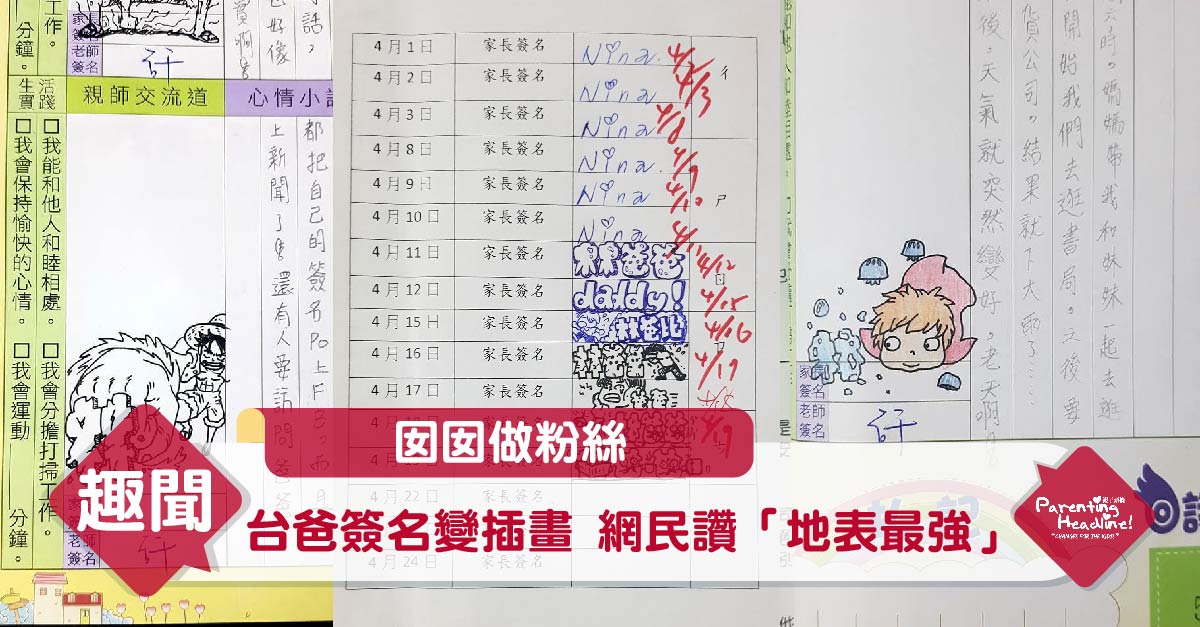 工作。
分鐘。
家長
簽名
老師
簽名
許
話，
好像
生活
實踐
親師交流道
心情小
□我能和他人和睦相處。
□我會分擔打掃工作。
□我會保持愉快的心情。
□我會運動
分鐘。
都把自己的簽名Po上F
上新聞了
還有人要訪問爸爸
老師
簽名
許
4月1日 家長簽名 Nina 4/2
4月2日 家長簽名 Nina 4/3
4月3日 家長簽名 Nina 4/8
4月8日 家長簽名 Nina 4/9
4月9日 家長簽名 Nina 4/10
4月10日 家長簽名 Nina 4/11
4月11日 家長簽名 爸爸 4/12
4月12日 家長簽名 daddy! 4/15
4月15日 家長簽名 4/16
4月16日 家長簽名 4/19
4月17日 家長簽名
4月22日 家長簽名
4月24日 家長簽名
六時。媽媽帶我和妹妹一起去逛
貨公司。結果就下大雨了…
開始我們去逛書局。之後要
後。天氣就突然變好。老天啊
家長
簽名
老師
簽名
許
囡囡做粉絲
趣聞
台爸簽名變插畫 網民讚「地表最強」
親子頭條
Parenting
Headline!
"CHANGES FOR THE KIDS!"